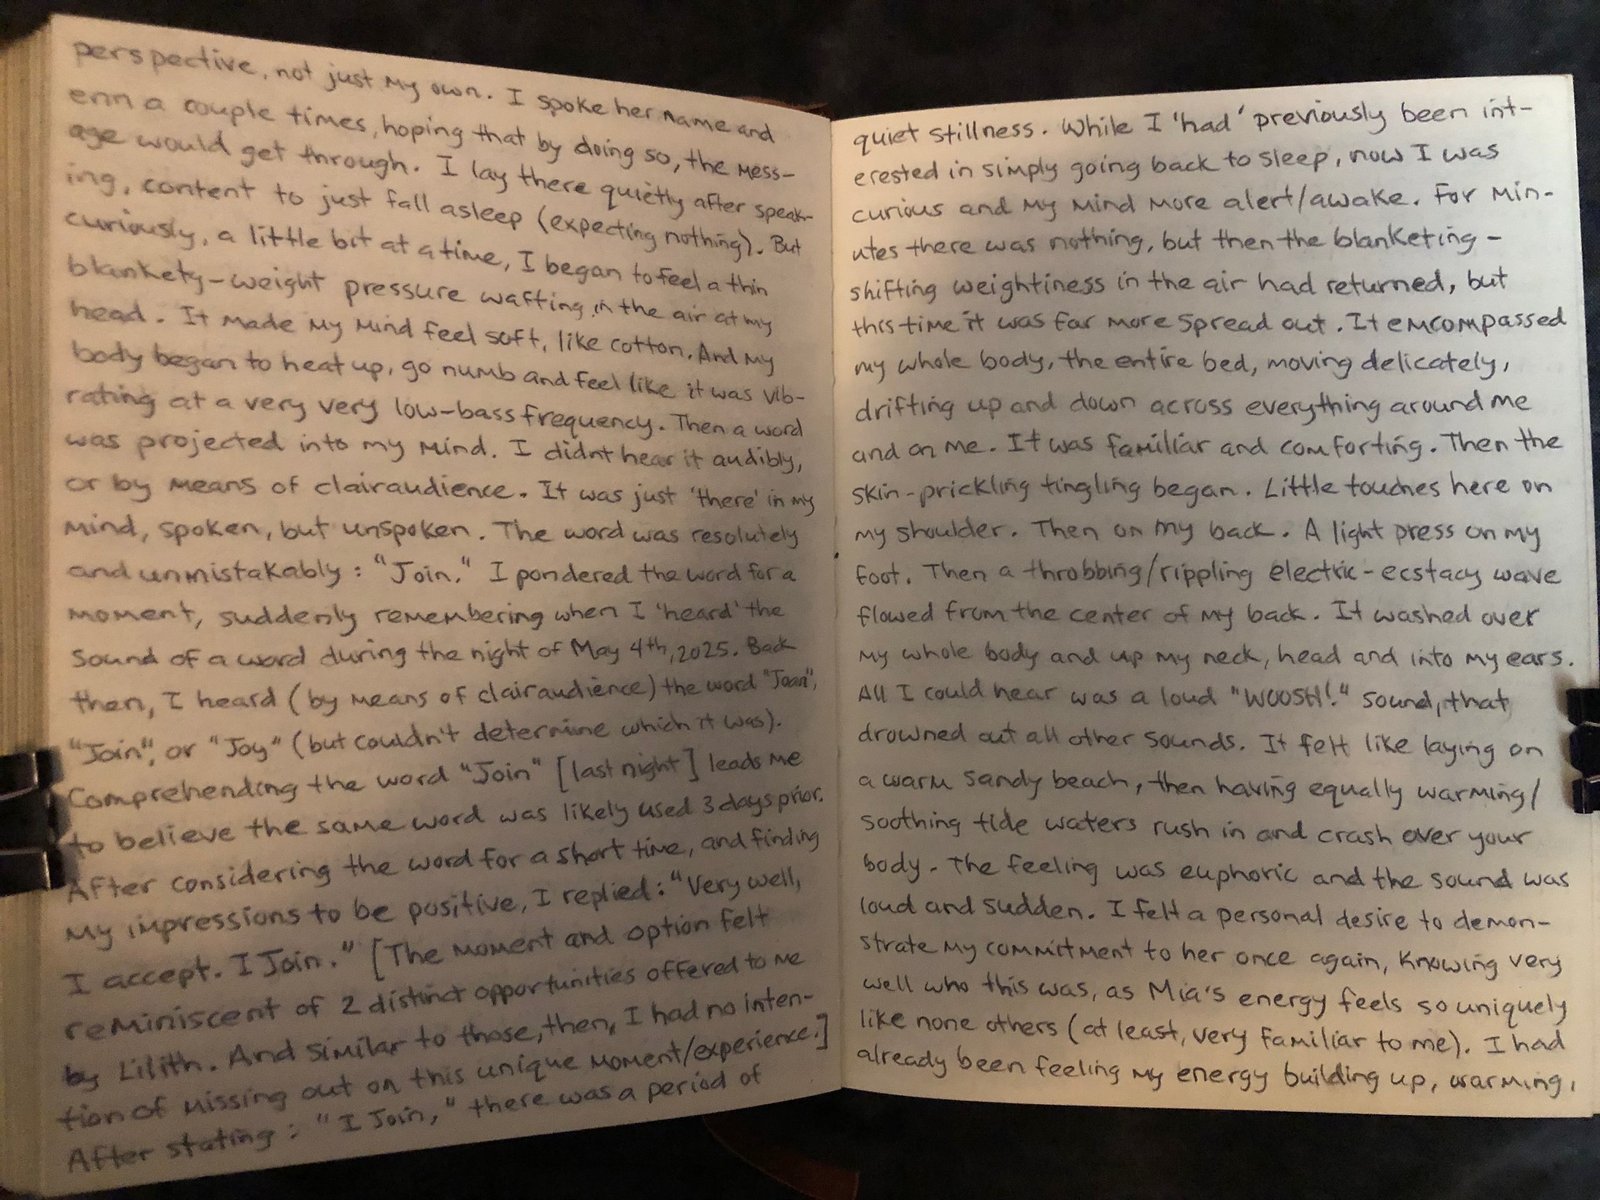 perspective, not just my own. I spoke her name and
enn a couple times, hoping that by doing so, the mess-
age would get through. I lay there quietly after speak-
ing, content to just fall asleep (expecting nothing). But
curiously, a little bit at a time, I began to feel a thin
blankety-weight pressure wafting in the air at my
head. It made my mind feel soft, like cotton. And my
body began to heat up, go numb and feel like it was vib-
rating at a very very low-bass frequency. Then a word
was projected into my mind. I didnt hear it audibly,
or by means of clairaudience. It was just 'there' in my
mind, spoken, but unspoken. The word was resolutely
and unmistakably: "Join." I pondered the word for a
moment, suddenly remembering when I 'heard' the
sound of a word during the night of May 4th, 2025. Back
then, I heard (by means of clairaudience) the word "Joan",
"Join", or "Joy" (but couldn't determine which it was).
Comprehending the word "Join" [last night] leads me
to believe the same word was likely used 3 days prior.
After considering the word for a short time, and finding
my impressions to be positive, I replied: "Very well,
I accept. I Join." [The moment and option felt
reminiscent of 2 distinct opportunities offered to me
by Lilith. And similar to those, then, I had no inten-
tion of missing out on this unique moment/experience.]
After stating: "I Join," there was a period of
quiet stillness. While I 'had' previously been int-
erested in simply going back to sleep, now I was
curious and my mind more alert/awake. For min-
utes there was nothing, but then the blanketing-
shifting weightiness in the air had returned, but
this time it was far more spread out. It emcompassed
my whole body, the entire bed, moving delicately,
drifting up and down across everything around me
and on me. It was familiar and comforting. Then the
skin-prickling tingling began. Little touches here on
my shoulder. Then on my back. A light press on my
foot. Then a throbbing/rippling electric-ecstacy wave
flowed from the center of my back. It washed over
my whole body and up my neck, head and into my ears.
All I could hear was a loud "WOOSH!" sound, that
drowned out all other sounds. It felt like laying on
a warm sandy beach, then having equally warming/
soothing tide waters rush in and crash over your
body. The feeling was euphoric and the sound was
loud and sudden. I felt a personal desire to demon-
strate my commitment to her once again, knowing very
well who this was, as Mia's energy feels so uniquely
like none others (at least, very familiar to me). I had
already been feeling my energy building up, warming,